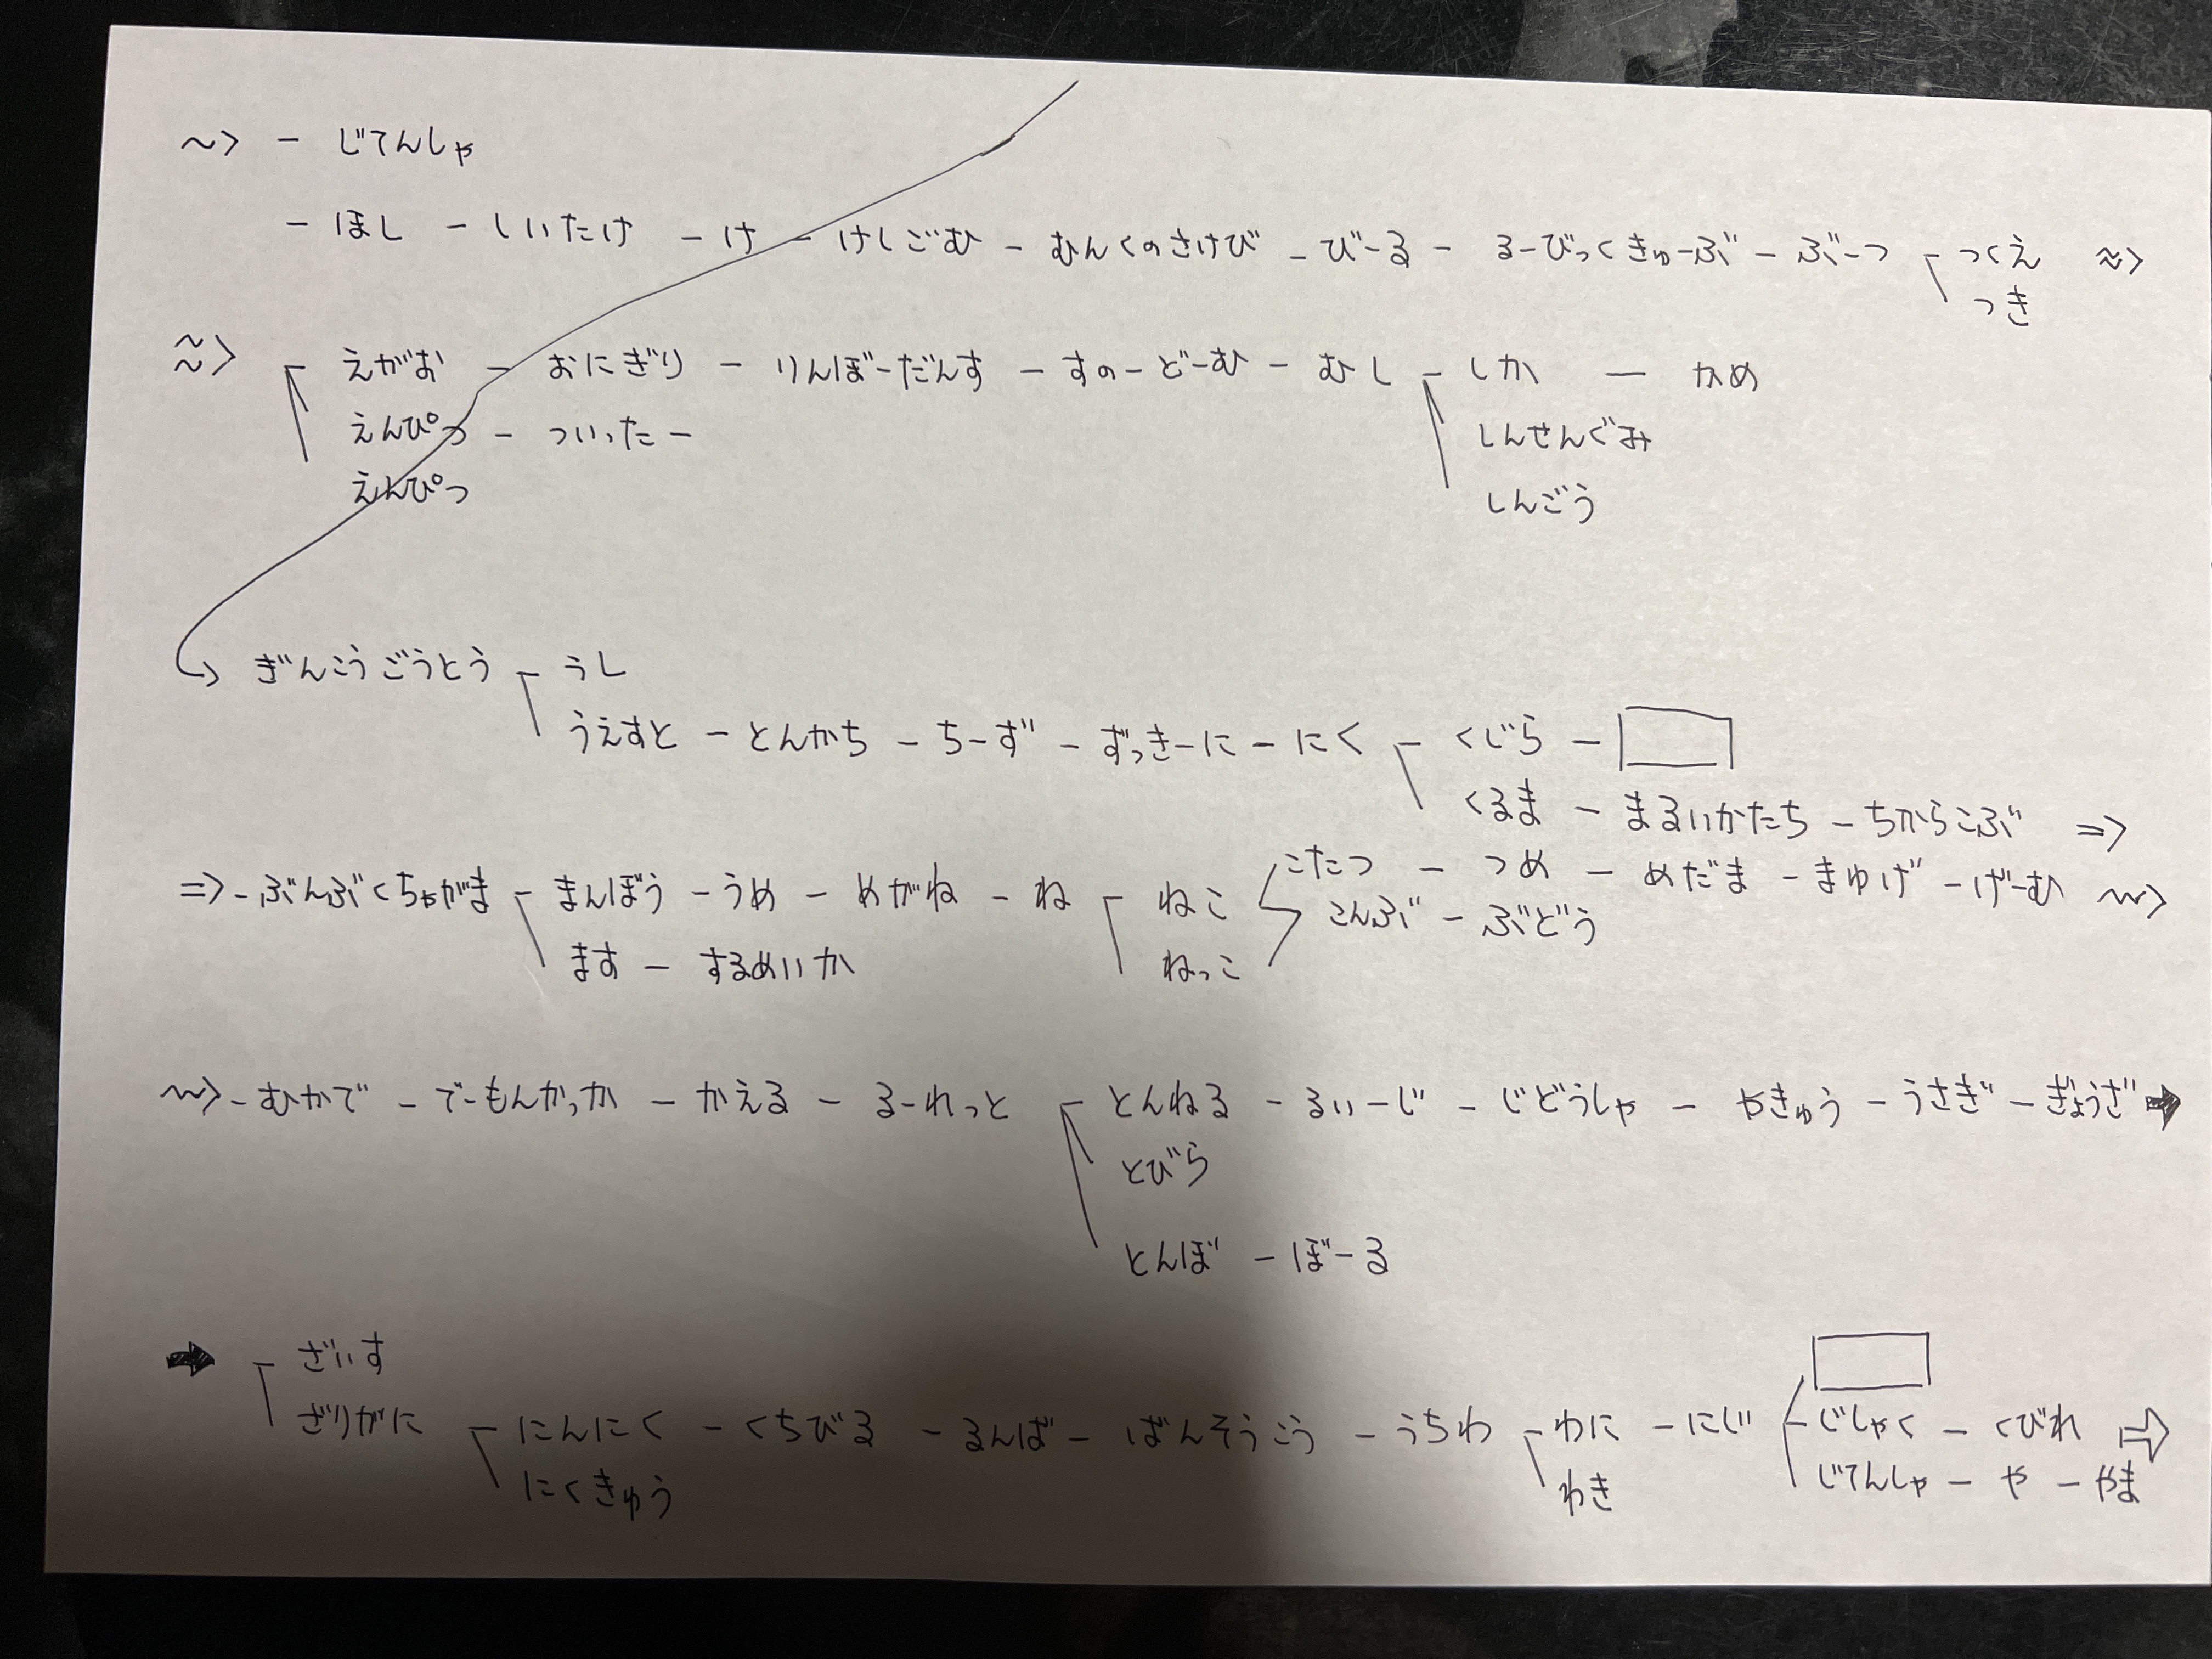 ~> - じてんしゃ
- ほし - しいたけ - け - けしごむ - むんくのさけび - びーる - るーびっくきゅーぶ - ぶーつ - つくえ ≈>
つき
≈> えがお - おにぎり - りんぼーだんす - すのーどーむ - むし - しか - かめ
えんぴつ - ついったー
しんせんぐみ
えんぴつ
しんごう
ぎんこうごうとう - うし
うえすと - とんかち - ちーず - ずっきーに - にく - くじら -
くるま - まるいかたち - ちからこぶ =>
=> - ぶんぶくちゃがま - まんぼう - うめ - めがね - ね - ねこ こたつ - つめ - めだま - まゆげ - げーむ ~>
こんぶ - ぶどう
ます - するめいか ねっこ
~> - むかで - でーもんかっか - かえる - るーれっと - とんねる - るいーじ - じどうしゃ - やきゅう - うさぎ - ぎょうざ ➡
とびら
とんぼ - ぼーる
➡ - ざいす
ざりがに - にんにく - くちびる - るんば - ばんそうこう - うちわ - わに - にじ - じしゃく - くびれ ⇨
にくきゅう わき じてんしゃ - や - やま